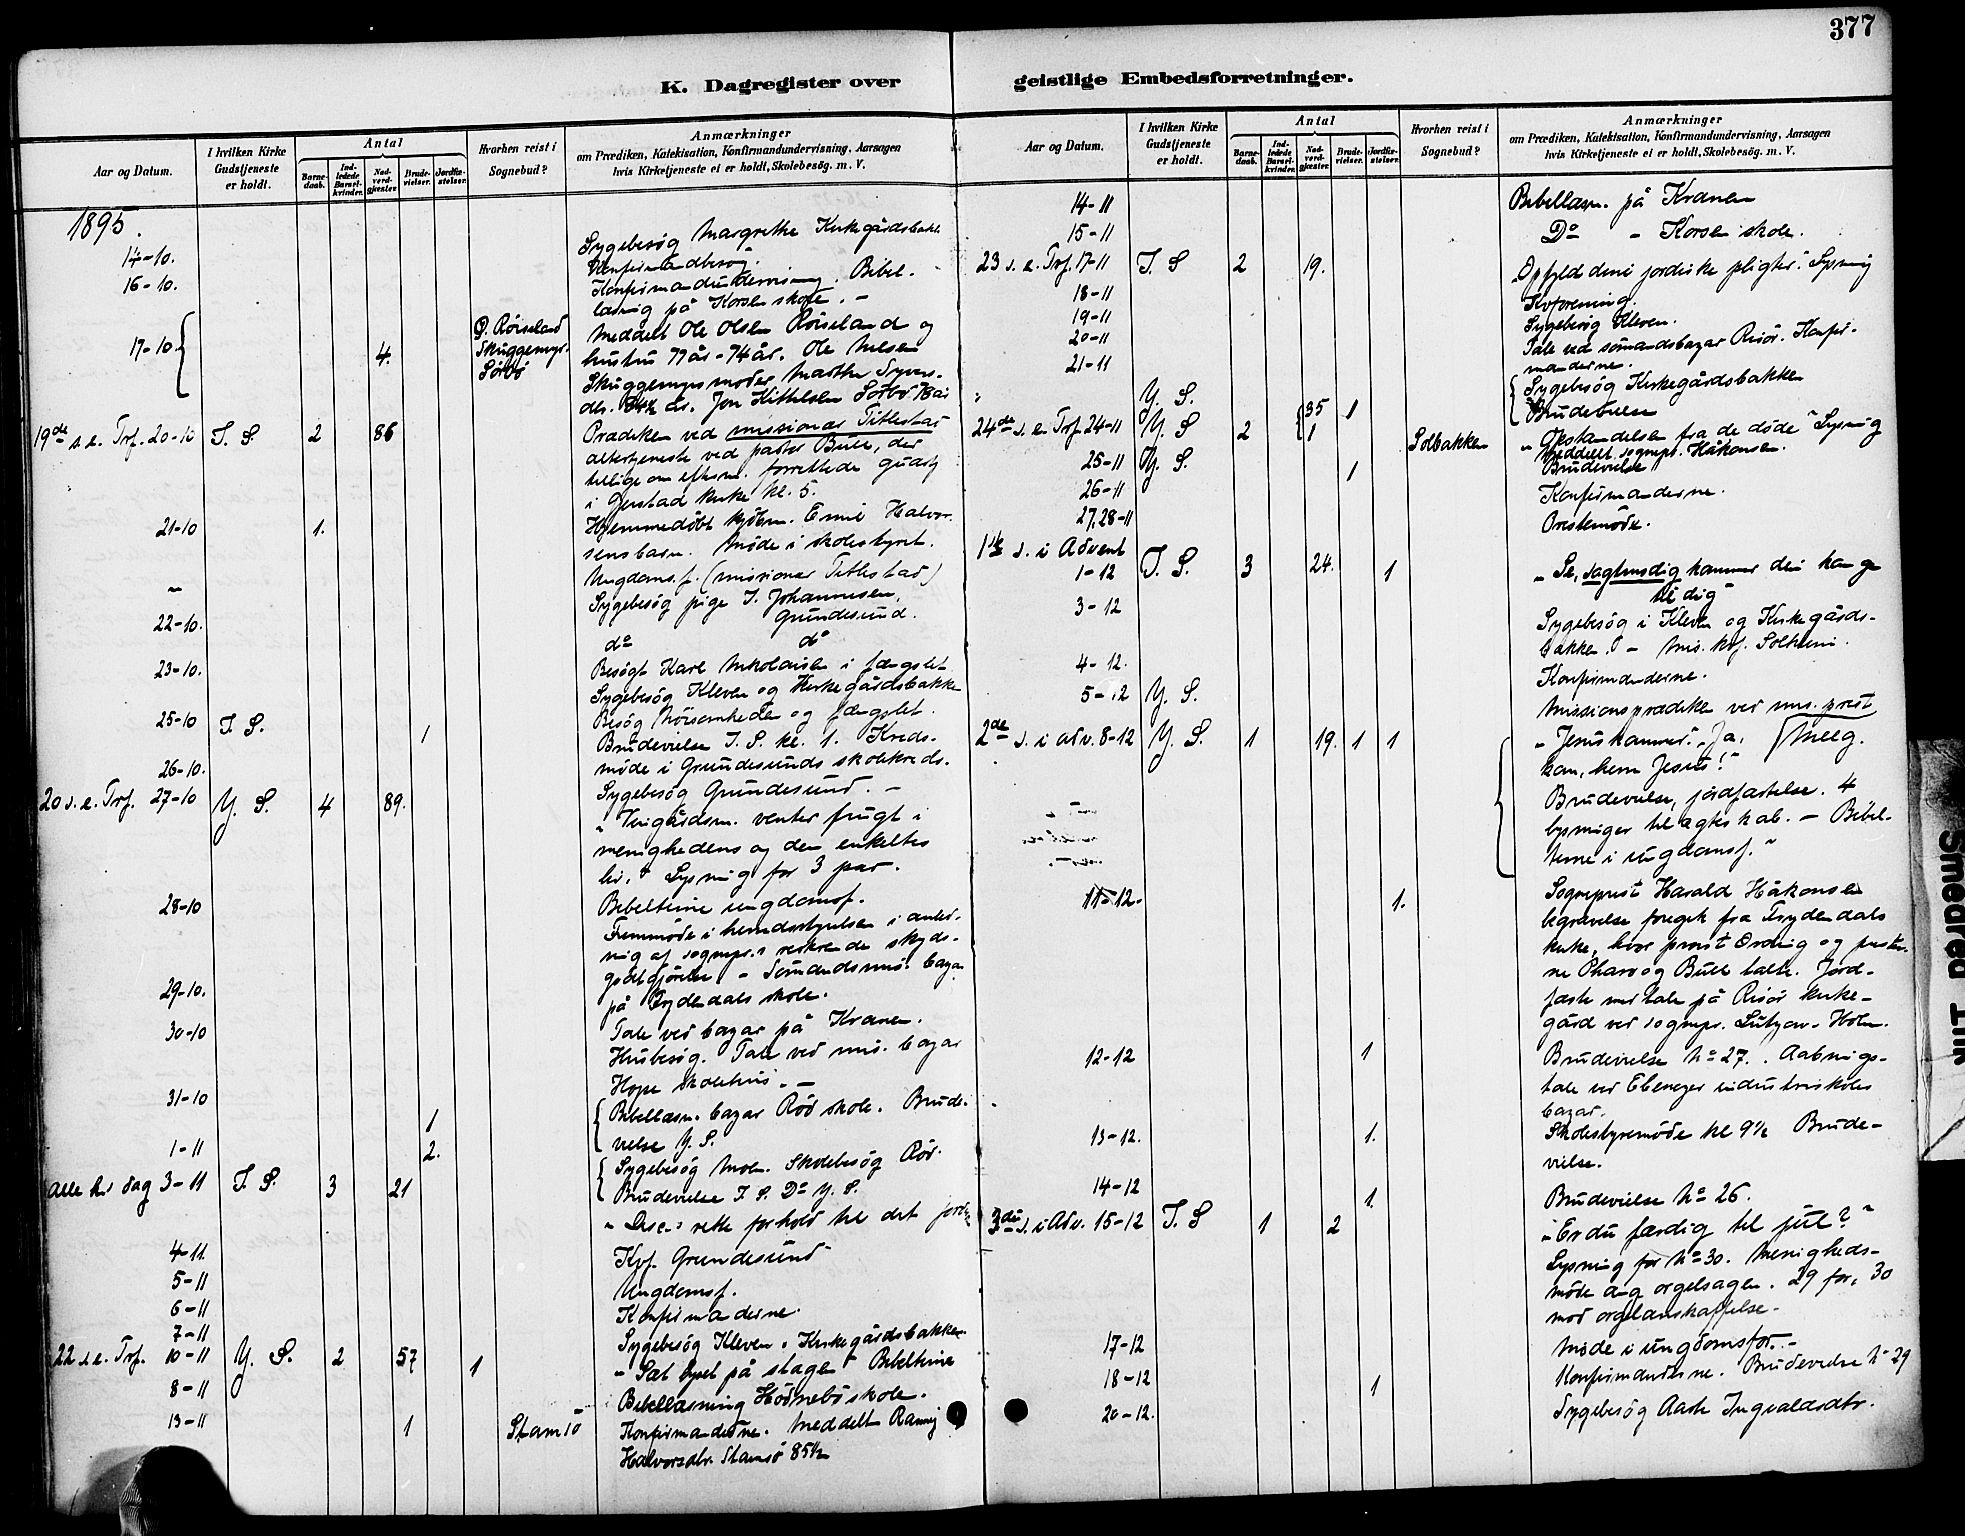 377
K. Dagregister over
geistlige Embedsforretninger.
Aar og Datum.
I hvilken Kirke Gudstjeneste er holdt.
Antal
Barnedaab.
Indledede Barselkvinder.
Nadverdgjæster.
Brudevielser.
Jordfæstelser.
Hvorhen reist i Sognebud?
Anmærkninger
om Prædiken, Katekisation, Konfirmandundervisning, Aarsagen
hvis Kirketjeneste ei er holdt, Skolebesøg. m. V.
1895.
14-10. Sygebesög Margrethe Kirkegårdsbakk
Konfirmandbesög.
16-10. Konfirmandundervisning. Bibel-
læsnig på Korsen skole. -
17-10 4. O. Röiseland Skuggemyr Sörbö
Meddelt Ole Olsen Röiseland og
hustru 77 år - 74 år. Ole Nilsen
Skuggemyrs moder Marthe Syvers-
dtr. år. Jon Kittelsen Sörbö
19de s. e. Tref. 20-10 I. S. 2 86 Prædiken ved missionær Tittlestad
altertjeneste ved pastor Bull, der
tillige om efterm. forrettede gudstj
i Gjerstad kirke kl. 5.
21-10 1. Hjemmedöbt Emil Halvor-
sens barn. Möde i skolestyret.
" Ungdomsf. (missionær Tittlestad)
22-10. Sygebesög pige I. Johannesen,
Grundesund.
do do
23-10. Besögt Karl Nikolaisen i fængslet
Sygebesög Kleven og Kirkegårdsbakke
25-10 I S. 1 Besög og fængslet.
Brudevielse I. S. kl. 1. Kreds-
26-10. möde i Grundesunds skolekreds.
20 s. e. Tref. 27-10 Y. S. 4 89. Sygebesög Grundesund. -
" Vingårdsm. venter frugt i
menighedens og den enkeltes
liv." Lysnig for 3 par.
28-10 Bibeltime ungdomsf.
i herredsstyrelsen i anled-
nig af sognepr.s skyds-
godtgjörelse - Sömandsmis. bazar
29-10. på skole.
30-10 Tale ved bazar på Kranen.
Husbesög. Tale ved mis. bazar
Hope skolehus. -
31-10 1 Bibellæsn. bazar Röd skole. Brude-
vielse Y. S.
1-11 2. Sygebesög Moen. Skolebesög Röd.
Brudevielse I. S. Do Y. S.
Alle h. dag 3-11 I. S. 3 21 " Disc.s rette forhold til det
4-11. Kvf. Grundesund
5-11 Ungdomsf.
6-11 Konfirmanderne.
7-11 Sygebesög Kleven, Kirkegårdsbakken
22 s. e. Tref. 10-11 Y. S. 2 57 1 " Sæt lyset på stagen" Bibeltime
8-11 Bibellæsning Hödnebö skole.
13-11 1 Stamsö Konfirmanderne. Meddelt
Halvorsdtr. Stamsö 85½
Aar og Datum.
I hvilken Kirke Gudstjeneste er holdt.
Antal
Barnedaab.
Indledede Barselkvinder.
Nadverdgjæster.
Brudevielser.
Jordfæstelser.
Hvorhen reist i Sognebud?
Anmærkninger
om Prædiken, Katekisation, Konfirmandundervisning, Aarsagen
hvis Kirketjeneste ei er holdt, Skolebesög. m. V.
14-11 Bibellæsn. på Kranen
15-11 Do - Korsen skole.
23 s. e. Tref. 17-11 I. S 2 19. " Opfyld dine jordiske pligter." Lysnig
18-11 Kvforening.
19-11 Sygebesög Kleven.
20-11 Tale ved sömandsbazar Risör. Konfir-
21-11 manderne.
Sygebesög Kirkegårdsbakken
" Y. S. 1 Brudevielse
24de s. e. Tref 24-11 Y. S 2 35 1 Solbakken " Opstandelsen fra de döde" Lysnig
Meddelt sognepr. Håkonsen.
25-11 Y. S. 1 Brudevielse
26-11 Konfirmanderne.
27, 28-11 Prestemöde.
1ste s. i Advent
1-12 I. S. 3 24. 1 " Se, sagtmodig kommer din konge
til dig"
3-12 Sygebesög i Kleven og Kirkegårds-
bakken. - Mis. kvf. Solheim.
4-12. Konfirmanderne.
5-12 Y. S. Missionsprædiken ved mis. prest
Meeg.
2de s. i adv. 8-12 Y. S. 1 19. 1 1 " Jesus kommer." " Ja,
kom, herre Jesus!"
Brudevielse, jordfæstelse. 4
lysninger til ægteskab. - Bibel-
time i ungdomsf. "
11-12. 1. Sogneprest Harald Håkonsen
begravelse foregik fra Frydendals
kirke, hvor provst Ording og pres
ne Pharo og Bull talte. Jord-
fæste med tale på Risör kirke-
gård ved sognepr. Lützow-Holm.
12-12 1 Brudevielse No 27. Aabnings-
tale ved Ebenezer industriskoles
bazar.
13-12. 1. Skolestyremöde kl 9½ Brude-
vielse.
14-12 1. Brudevielse No 26.
3die s. i Adv. 15-12 I. S 1 2 " Er du færdig til jul?"
Lysning for No 30. Menigheds-
möde ang orgelsagen. 29 for, 30
mod orgelanskaffelse.
17-12 Möde i ungdomsfor. -
18-12 1 Konfirmanderne. Brudevielse No 29
20-12. Sygebesög Aasta Ingvaldsdtr.